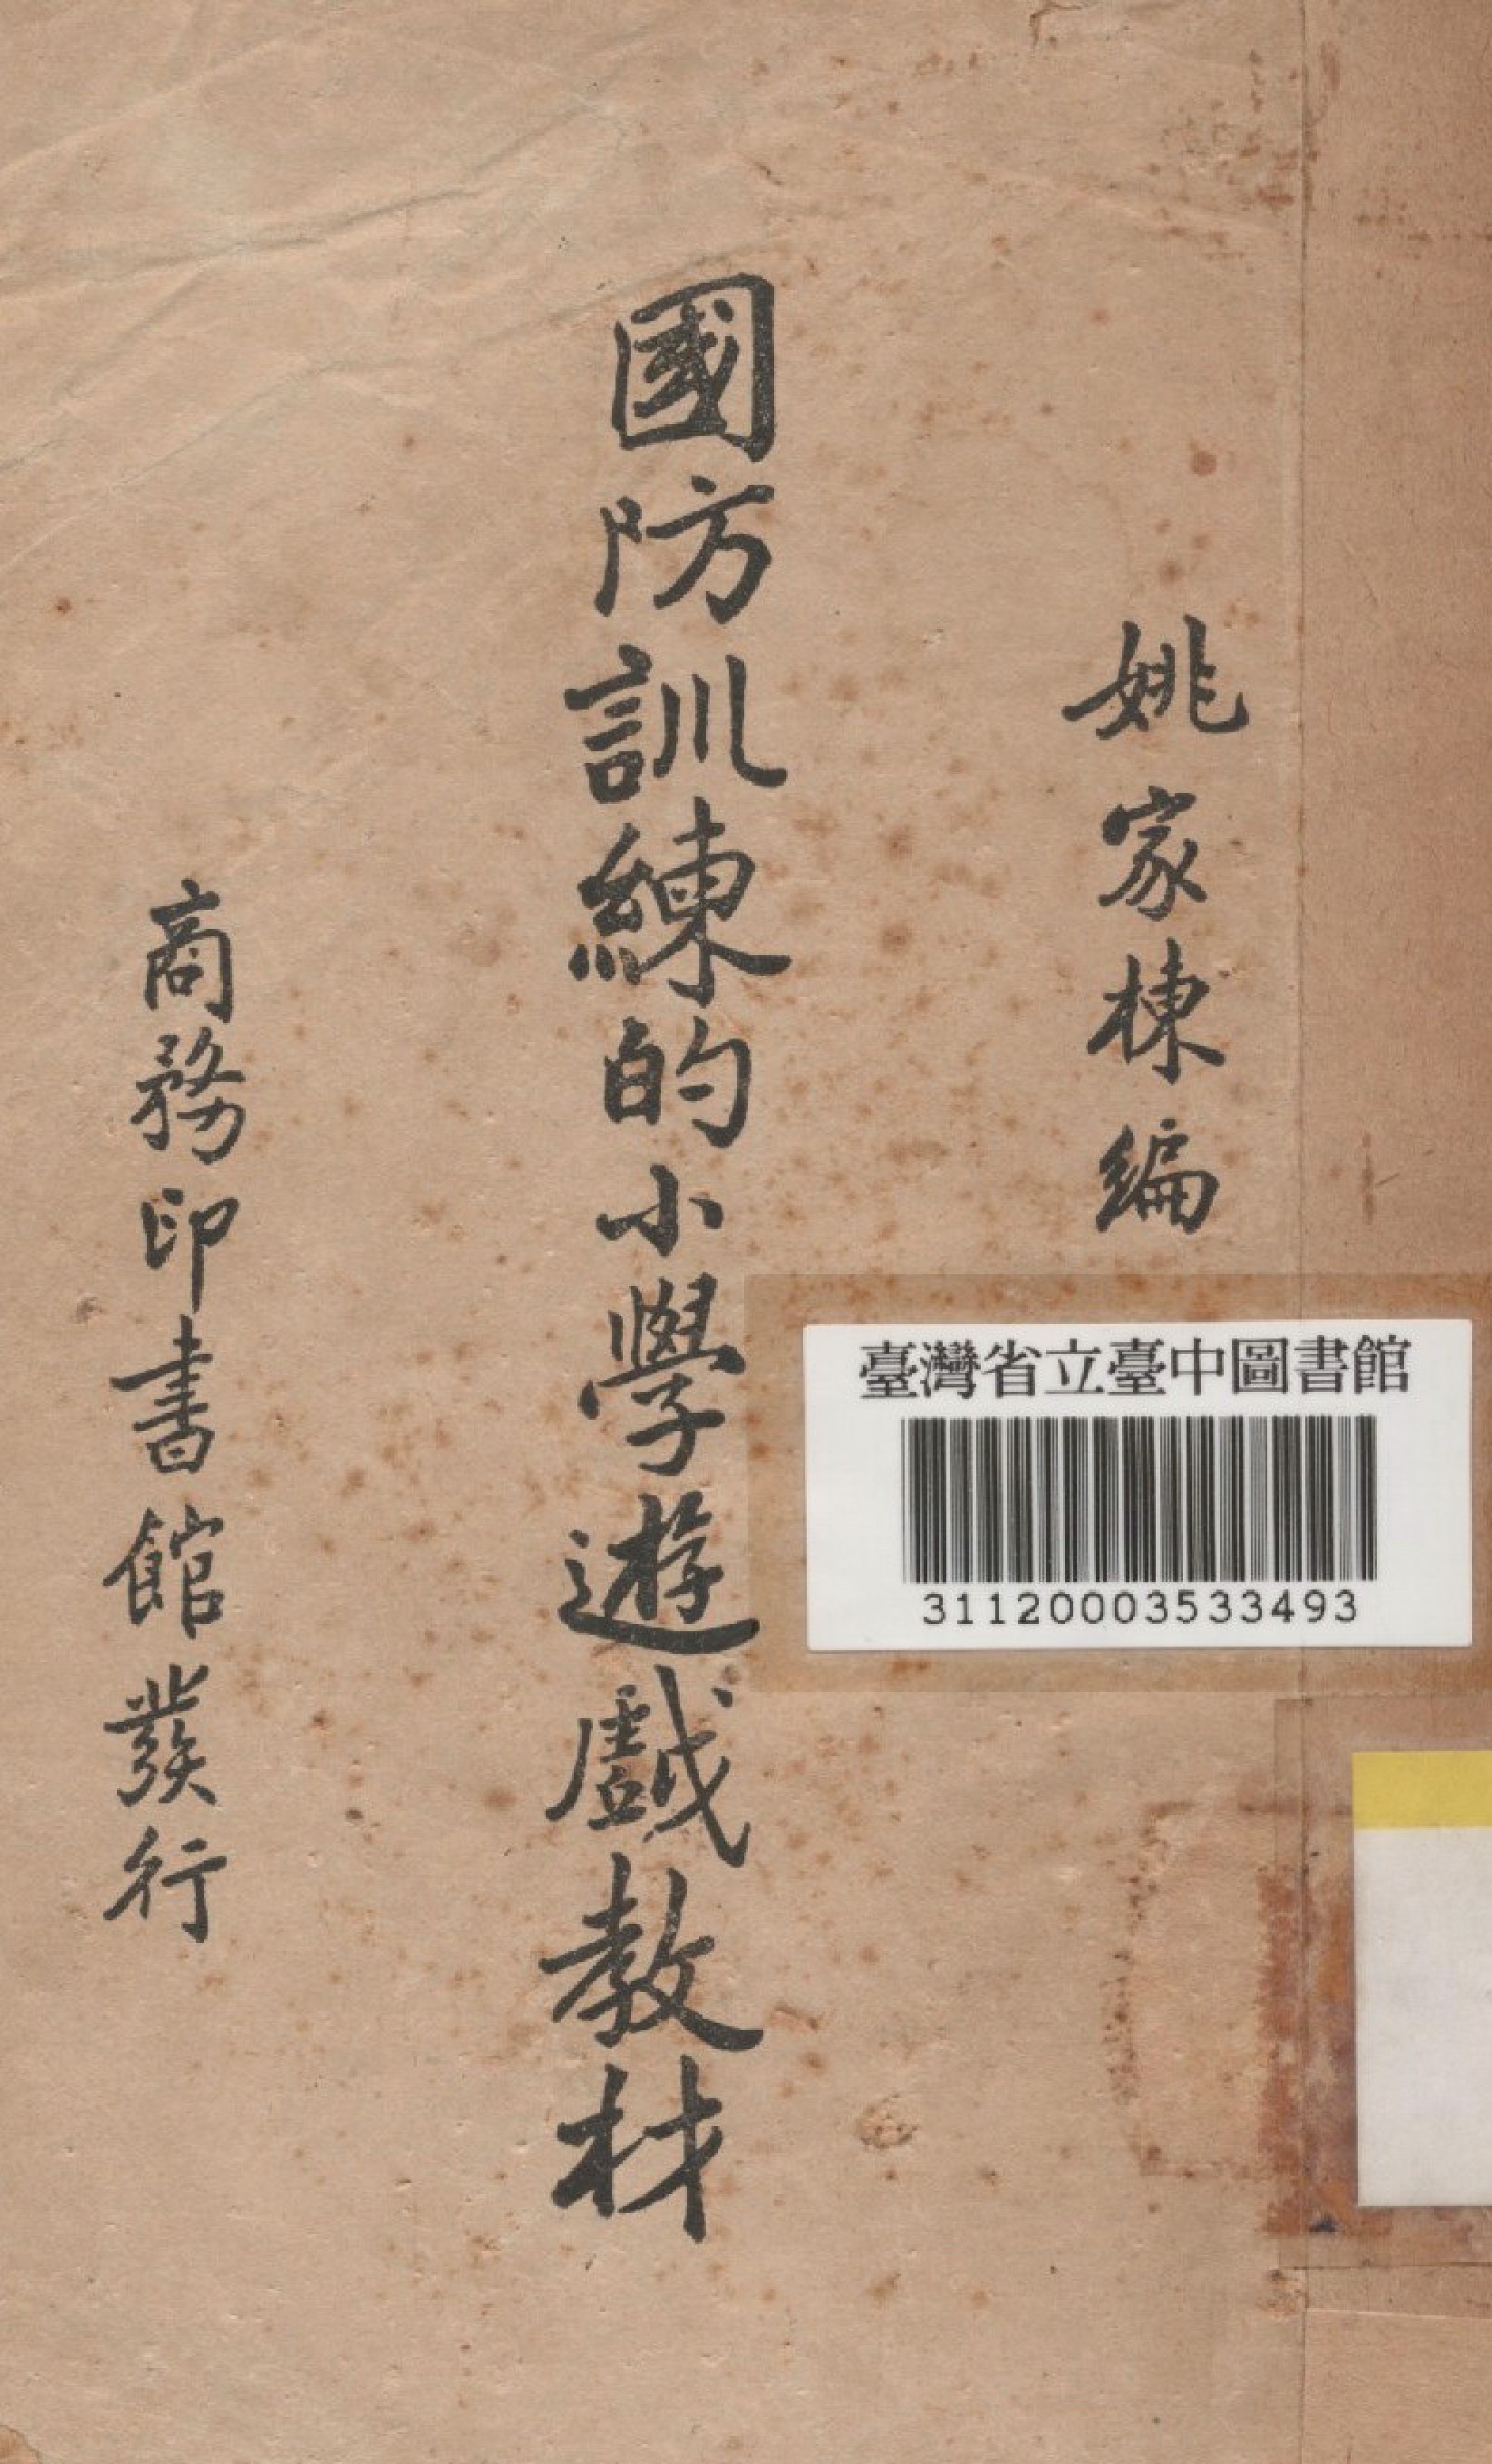 姚家棟編
國防訓練的小學遊戲教材
商務印書館發行
臺灣省立臺中圖書館
31120003533493